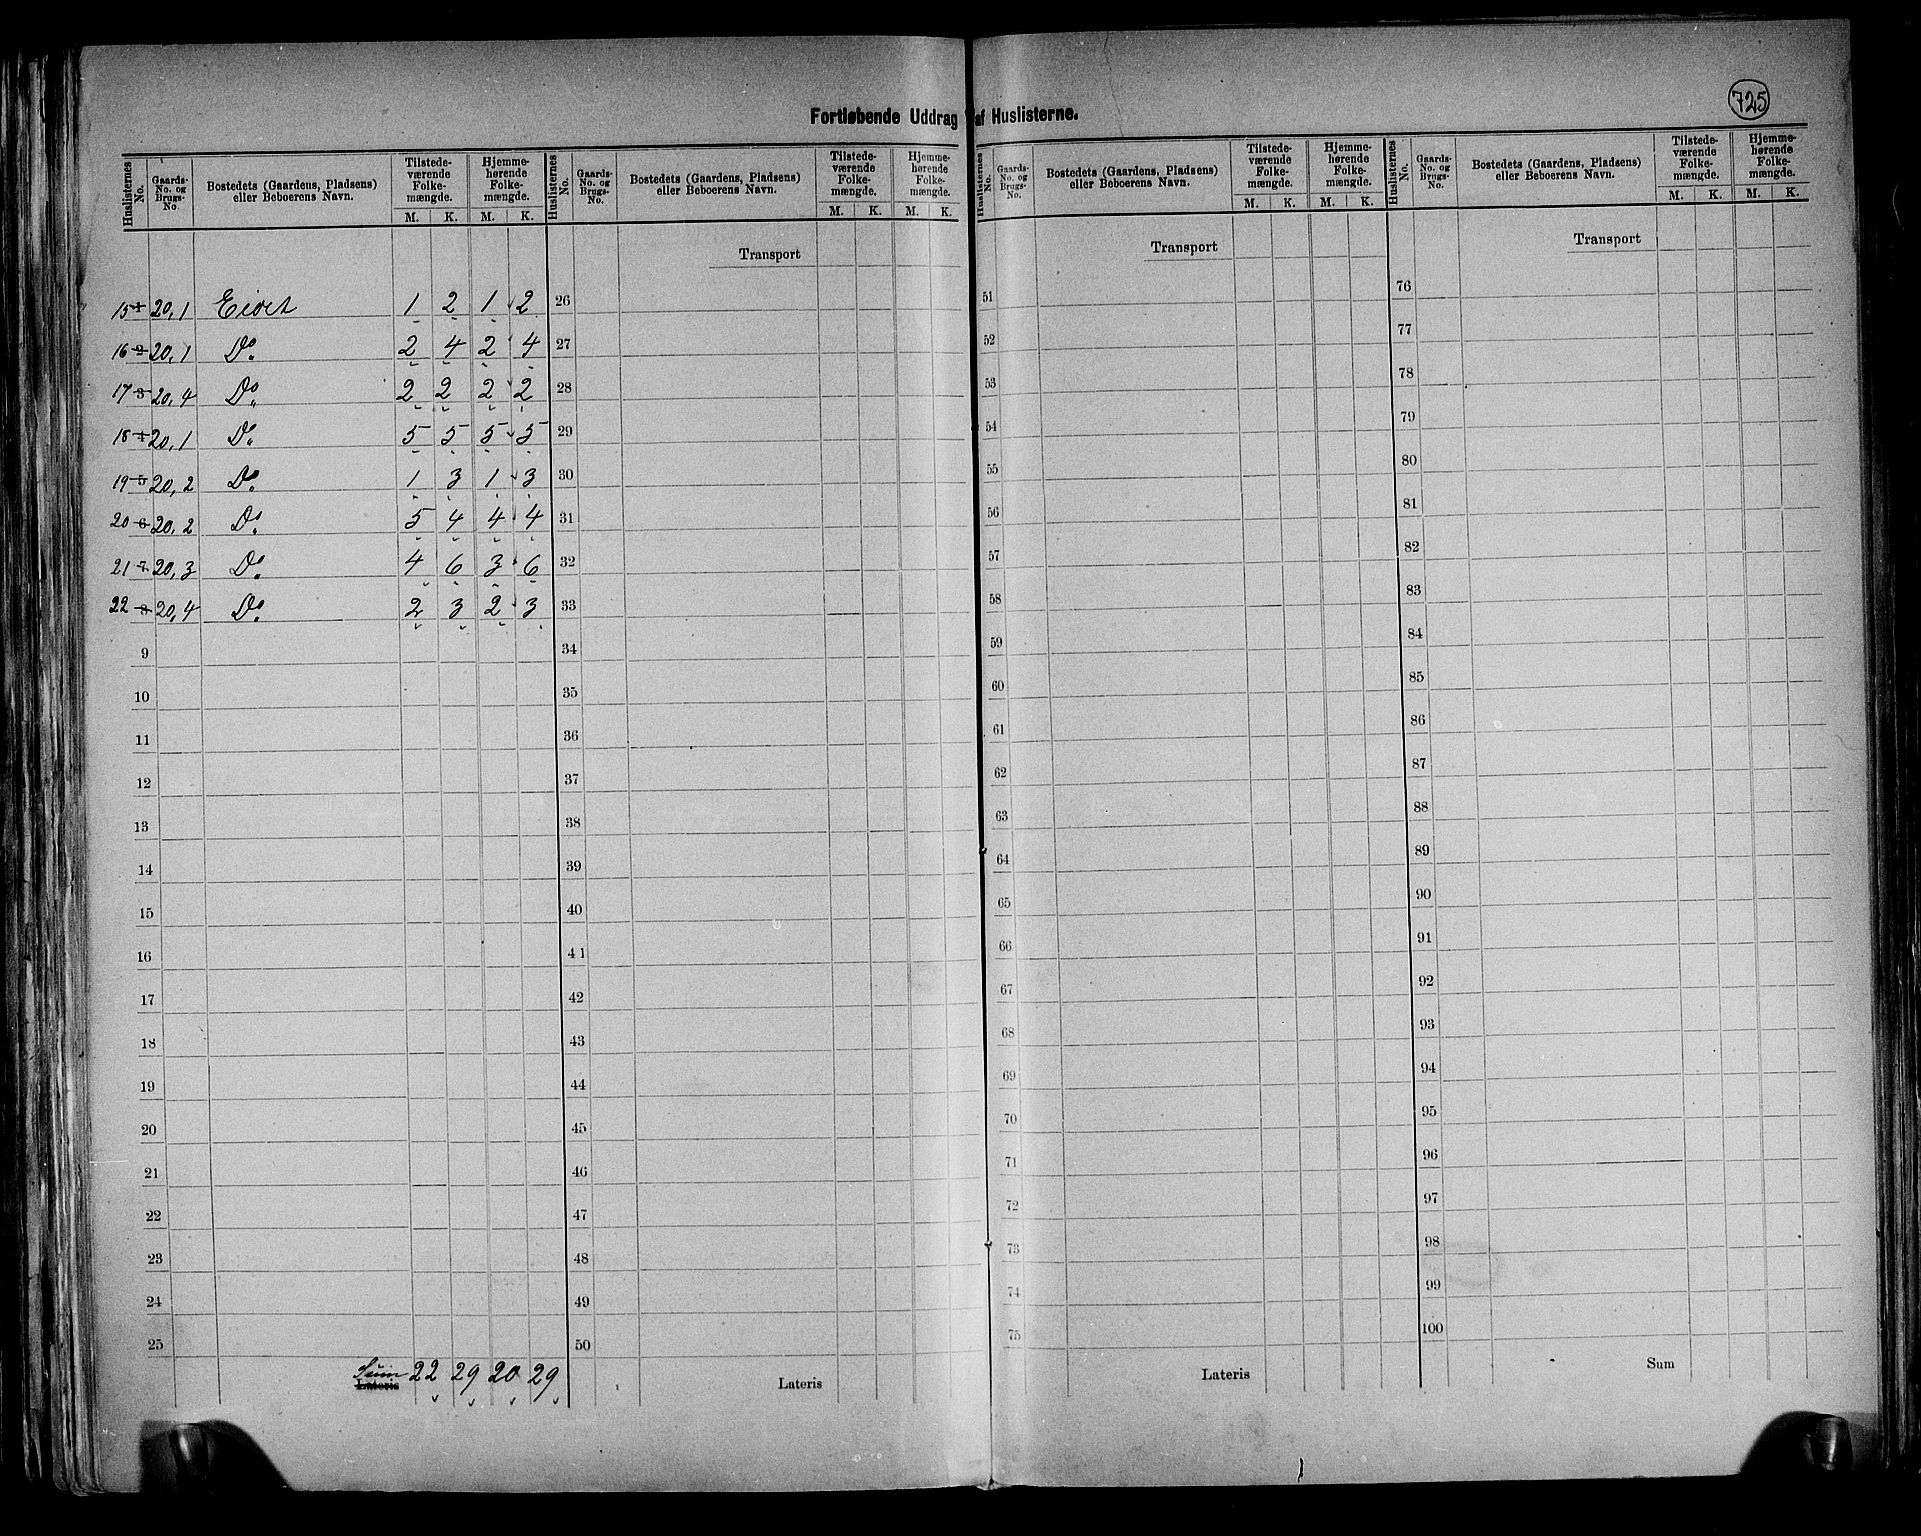 725
Fortløbende Uddrag af Huslisterne.
Huslisternes No. Gaards-No. og Brugs-No. Bostedets (Gaardens, Pladsens) eller Beboerens Navn. Tilstedeværende Folkemængde. M. K. Hjemmehørende Folkemængde. M. K.
Huslisternes No. Gaards-No. og Brugs-No. Bostedets (Gaardens, Pladsens) eller Beboerens Navn. Tilstedeværende Folkemængde. M. K. Hjemmehørende Folkemængde. M. K.
Huslisternes No. Gaards-No. og Brugs-No. Bostedets (Gaardens, Pladsens) eller Beboerens Navn. Tilstedeværende Folkemængde. M. K. Hjemmehørende Folkemængde. M. K.
Huslisternes No. Gaards-No. og Brugs-No. Bostedets (Gaardens, Pladsens) eller Beboerens Navn. Tilstedeværende Folkemængde. M. K. Hjemmehørende Folkemængde. M. K.
Transport Transport Transport
15 1 20,1 1 2 1 2 26 51 76
16 2 20,1 Do. 2 4 2 4 27 52 77
17 3 20,4 Do. 2 2 2 2 28 53 78
18 4 20,1 Do. 5 5 5 5 29 54 79
19 5 20,2 Do. 1 3 1 3 30 55 80
20 6 20,2 Do. 5 4 4 4 31 56 81
21 7 20,3 Do. 4 6 3 6 32 57 82
22 8 20,4 Do. 2 3 2 3 33 58 83
9 34 59 84
10 35 60 85
11 36 61 86
12 37 62 87
13 38 63 88
14 39 64 89
15 40 65 90
16 41 66 91
17 42 67 92
18 43 68 93
19 44 69 94
20 45 70 95
21 46 71 96
22 47 72 97
23 48 73 98
24 49 74 99
25 50 75 100
Sum Lateris 22 29 20 29 Lateris Lateris Sum